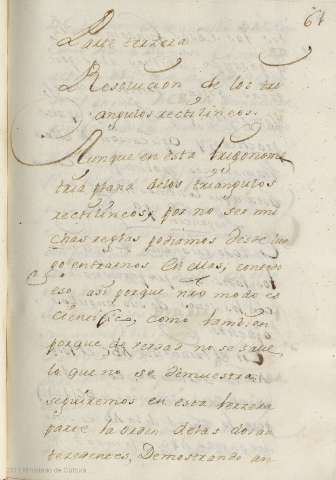 61
Parte tercera
Resolucion de los tri
angulos rectilineos.
Aunque en esta trigonome
tria plana de los triangulos
rectilineos, por no ser mu
chas reglas podiamos desde lue
go entrarnos en ellas, con todo
eso, asi porque nro modo es
cientifico, como tambien
porque de versas no se sabe
lo que no se demuestra,
seguiremos en esta tercera
parte la orden de las demas
Demostrando an
2011 Ministerio de Cultura